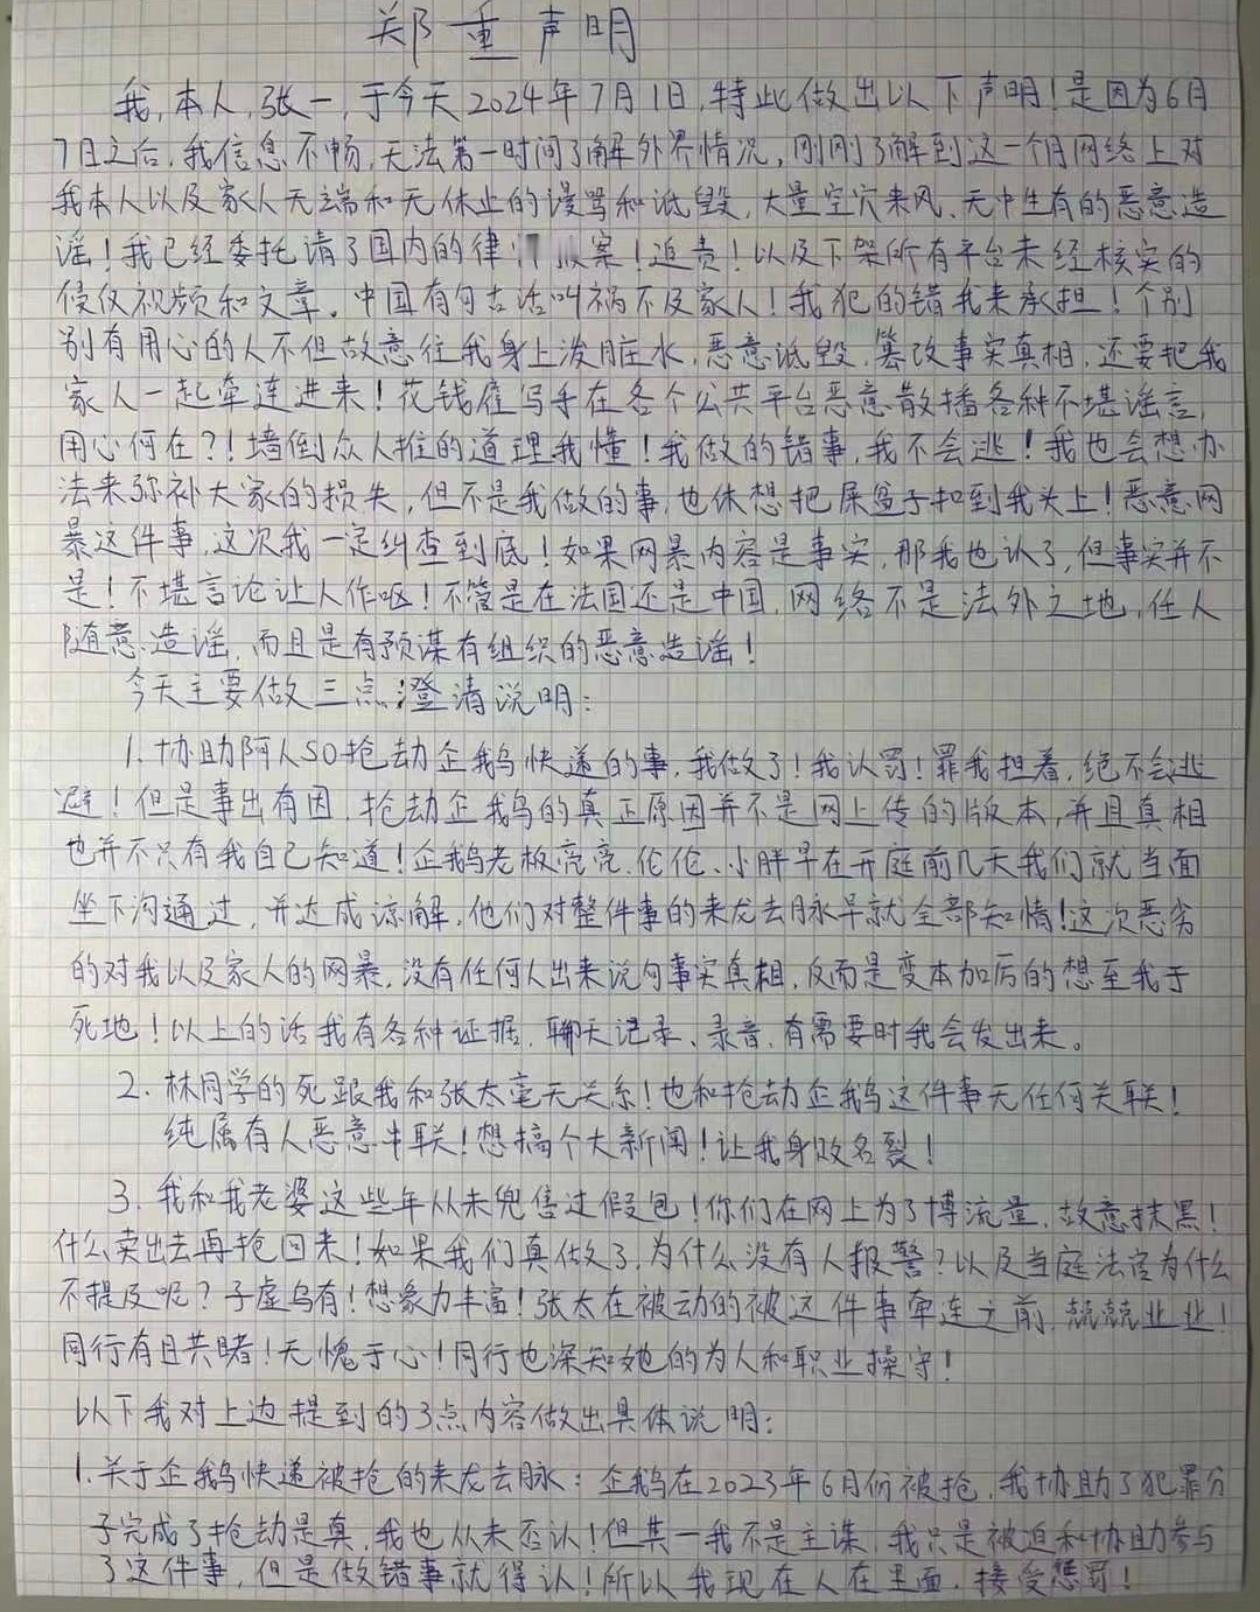 郑重声明
我,本人,张一,于今天2024年7月1日,特此做出以下声明!是因为6月
7日之后,我信息不畅,无法第一时间了解外界情况,刚刚了解到这一个月网络上对
我本人以及家人无端和无休止的谩骂和诋毁,大量空穴来风、无中生有的恶意造
谣!我已经委托请了国内的律 案!追责!以及下架所有平台未经核实的
侵仅视频和文章。中国有句古话叫祸不及家人!我犯的错我来承担!个别
别有用心的人不但故意往我身上泼脏水,恶意诋毁,篡改事实真相,还要把我
家人一起牵连进来!花钱雇写手在各个公共平台恶意散播各种不堪谣言,
用心何在?!墙倒众人推的道理我懂!我做的错事,我不会逃!我也会想办
法来弥补大家的损失,但不是我做的事,也休想把屎盆子扣到我头上!恶意网
暴这件事,这次我一定纠查到底!如果网暴内容是事实,那我也认了,但事实并不
是!不堪言论让人作呕!不管是在法国还是中国,网络不是法外之地,任人
随意造谣,而且是有预谋有组织的恶意造谣!
今天主要做三点澄清说明:
1.协助阿人SO抢劫企鹅快递的事,我做了!我认罚!罪我担着,绝不会逃
避!但是事出有因,抢劫企鹅的真正原因并不是网上传的版本,并且真相
也并不只有我自己知道!企鹅老板亮亮、伦伦、小胖早在开庭前几天我们就当面
坐下沟通过,并达成谅解,他们对整件事的来龙去脉早就全部知情!这次恶劣
的对我以及家人的网暴,没有任何人出来说句事实真相,反而是变本加厉的想至我于
死地!以上的话我有各种证据,聊天记录、录音,有需要时我会发出来。
2.林同学的死跟我和张太毫无关系!也和抢劫企鹅这件事无任何关联!
纯属有人恶意串联!想搞个大新闻!让我身败名裂!
3.我和我老婆这些年从未兜售过假包!你们在网上为了博流量,故意抹黑!
什么卖出去再抢回来!如果我们真做了,为什么没有人报警?以及当庭法官为什么
不提及呢?子虚乌有!想象力丰富!张太在被动的被这件事牵连之前,兢兢业业!
同行有目共睹!无愧于心!同行也深知她的为人和职业操守!
以下我对上边提到的3点内容做出具体说明:
1.关于企鹅快递被抢的来龙去脉:企鹅在2023年6月份被抢,我协助了犯罪分
子完成了抢劫是真,我也从未否认!但其一我不是主谋,我只是被迫和协助参与
了这件事,但是做错事就得认!所以我现在人在里面,接受惩罚!